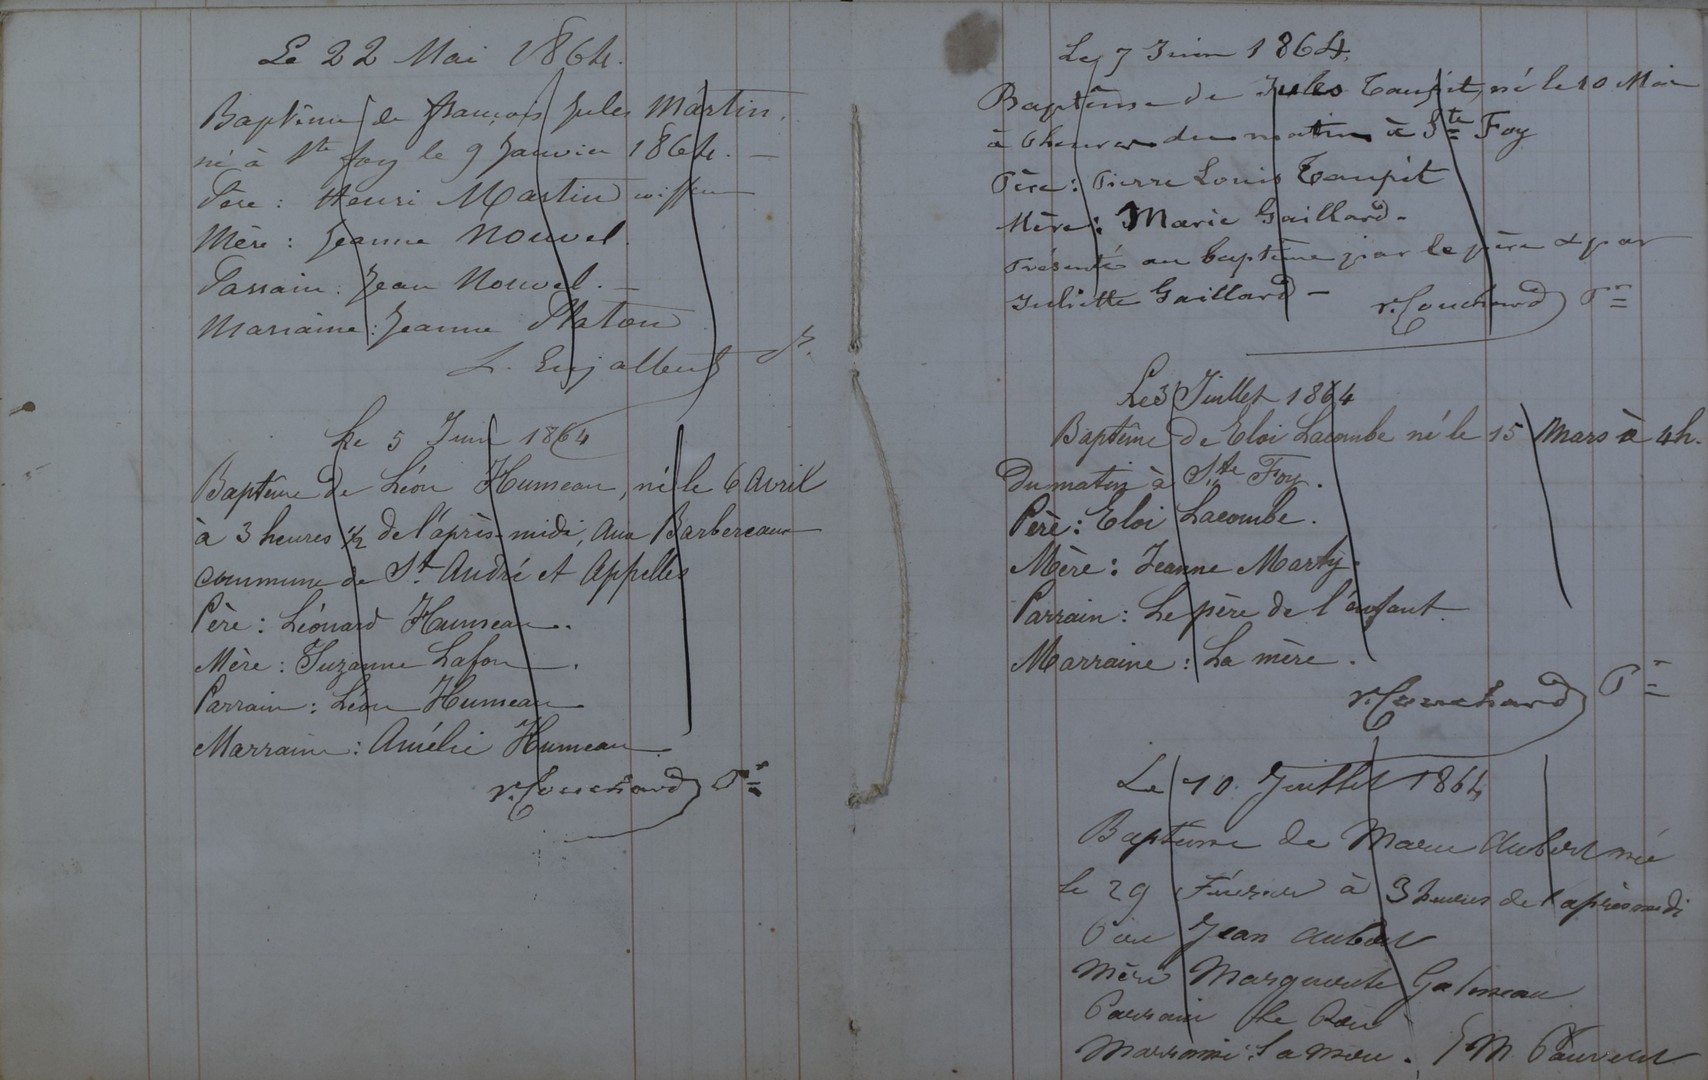 Le 22 Mai 1864.
Baptême de françois Jules Martin.
né à Ste foy le 9 Janvier 1864. —
Père : Henri Martin coiffeur
Mère : Jeanne Nouvel.
Parrain : Jean Nouvel. —
Marraine : Jeanne Platon
L. Enjalbert
Le 5 Juin 1864
Baptême de Léon Humeau, né le 6 Avril
à 3 heures 1/2 de l'après-midi, aux Barbereaux
commune de St André et Appelles
Père : Léonard Humeau.
Mère : Suzanne Lafon.
Parrain : Léon Humeau
Marraine : Amélie Humeau
v. Couchard Pr
Le 7 Juin 1864.
Baptême de Jules Taupit, né le 10 Mai
à 6 heures du matin à Ste Foy
Père : Pierre Louis Taupit
Mère : Marie Gaillard -
Présenté au baptême par le père & par
Juliette Gaillard -
v. Couchard Pr
Le 3 Juillet 1864
Baptême de Eloi Lacombe né le 15 Mars à 4h.
du matin à Ste Foy.
Père : Eloi Lacombe.
Mère : Jeanne Marty.
Parrain : Le père de l'enfant.
Marraine : La mère.
v. Couchard Pr
Le 10 Juillet 1864
Baptême de Marie Aubert née
le 29 Février à 3 heures de l'après midi
Père Jean Aubert
Mère Marguerite Galineau
Parrain Le Père
Marraine : La Mère.